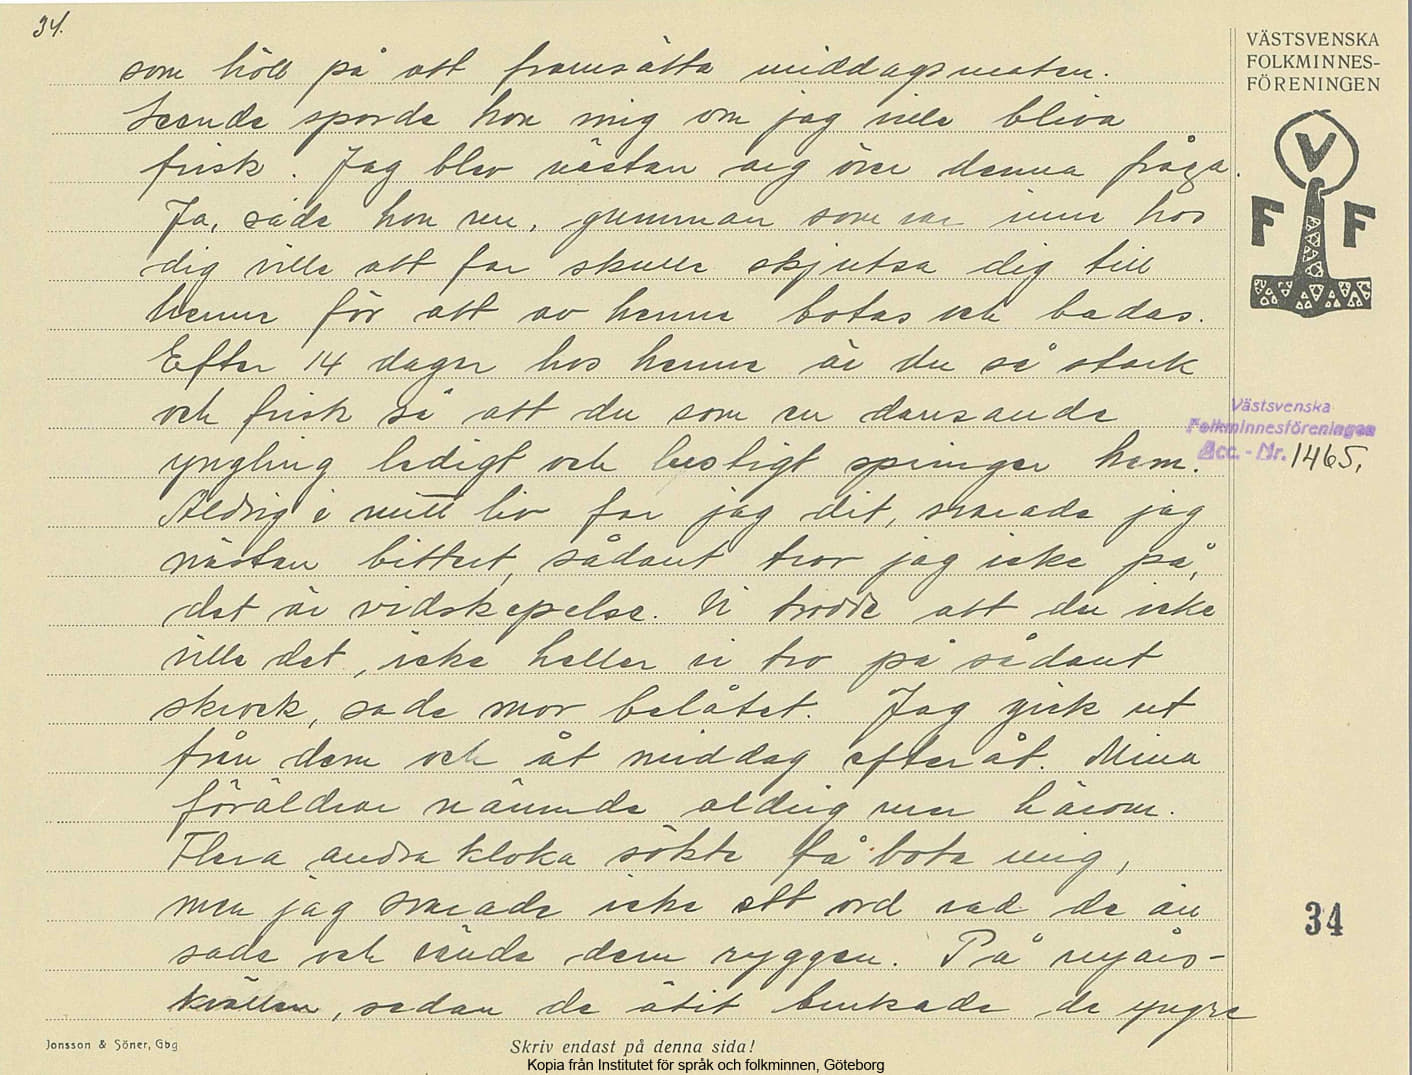 34.
som höll på att framsätta middagsmaten.
Leende sporde hon mig om jag ville bliva
frisk. Jag blev nästan arg över denna fråga.
Ja, sade hon nu, gumman som var inne hos
dig ville att far skulle skjutsa dig till
henne för att av henne botas och badas.
Efter 14 dagar hos henne är du så stark
och frisk så att du som en dansande
yngling ledigt och lustigt springer hem.
Aldrig i mitt liv far jag dit, svarade jag
nästan bittert, sådant tror jag icke på,
det är vidskepelse. Vi trodde att du icke
ville det, icke heller vi tro på sådant
skrock, sade mor belåtet. Jag gick ut
från dem och åt middag efteråt. Mina
föräldrar nämnde aldrig mer härom.
Flera andra kloka sökte få bota mig,
men jag svarade icke ett ord vad de än
sade och vände dem ryggen. På nyårs-
kvällen, sedan de ätit bänkade de yngre
VÄSTSVENSKA
FOLKMINNES-
FÖRENINGEN
V
F F
Västsvenska
Folkminnesföreningen
Acc. - Nr. 1465.
34
Jonsson & Söner, Gbg
Skriv endast på denna sida!
Kopia från Institutet för språk och folkminnen, Göteborg